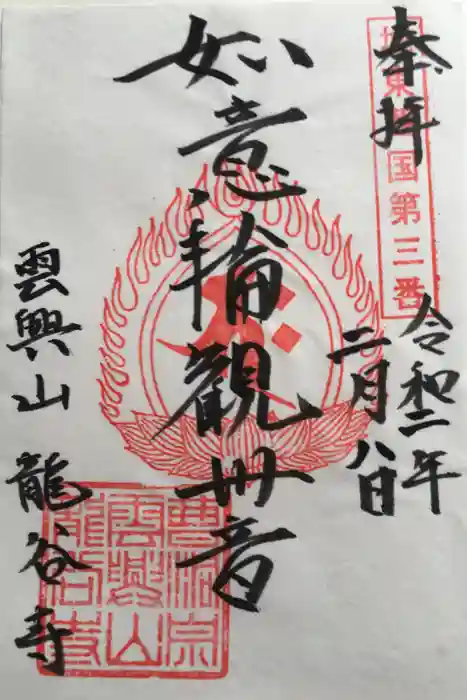 奉拝
東 国第三番
令和二年
二月八日
如意輪觀世音
雲興山 龍谷寺
曹洞宗
雲興山
龍谷寺